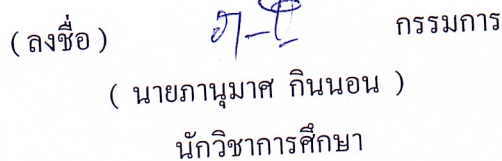 ( ลงชื่อ ) กรรมการ
( นายภานุมาศ กินนอน )
นักวิชาการศึกษา